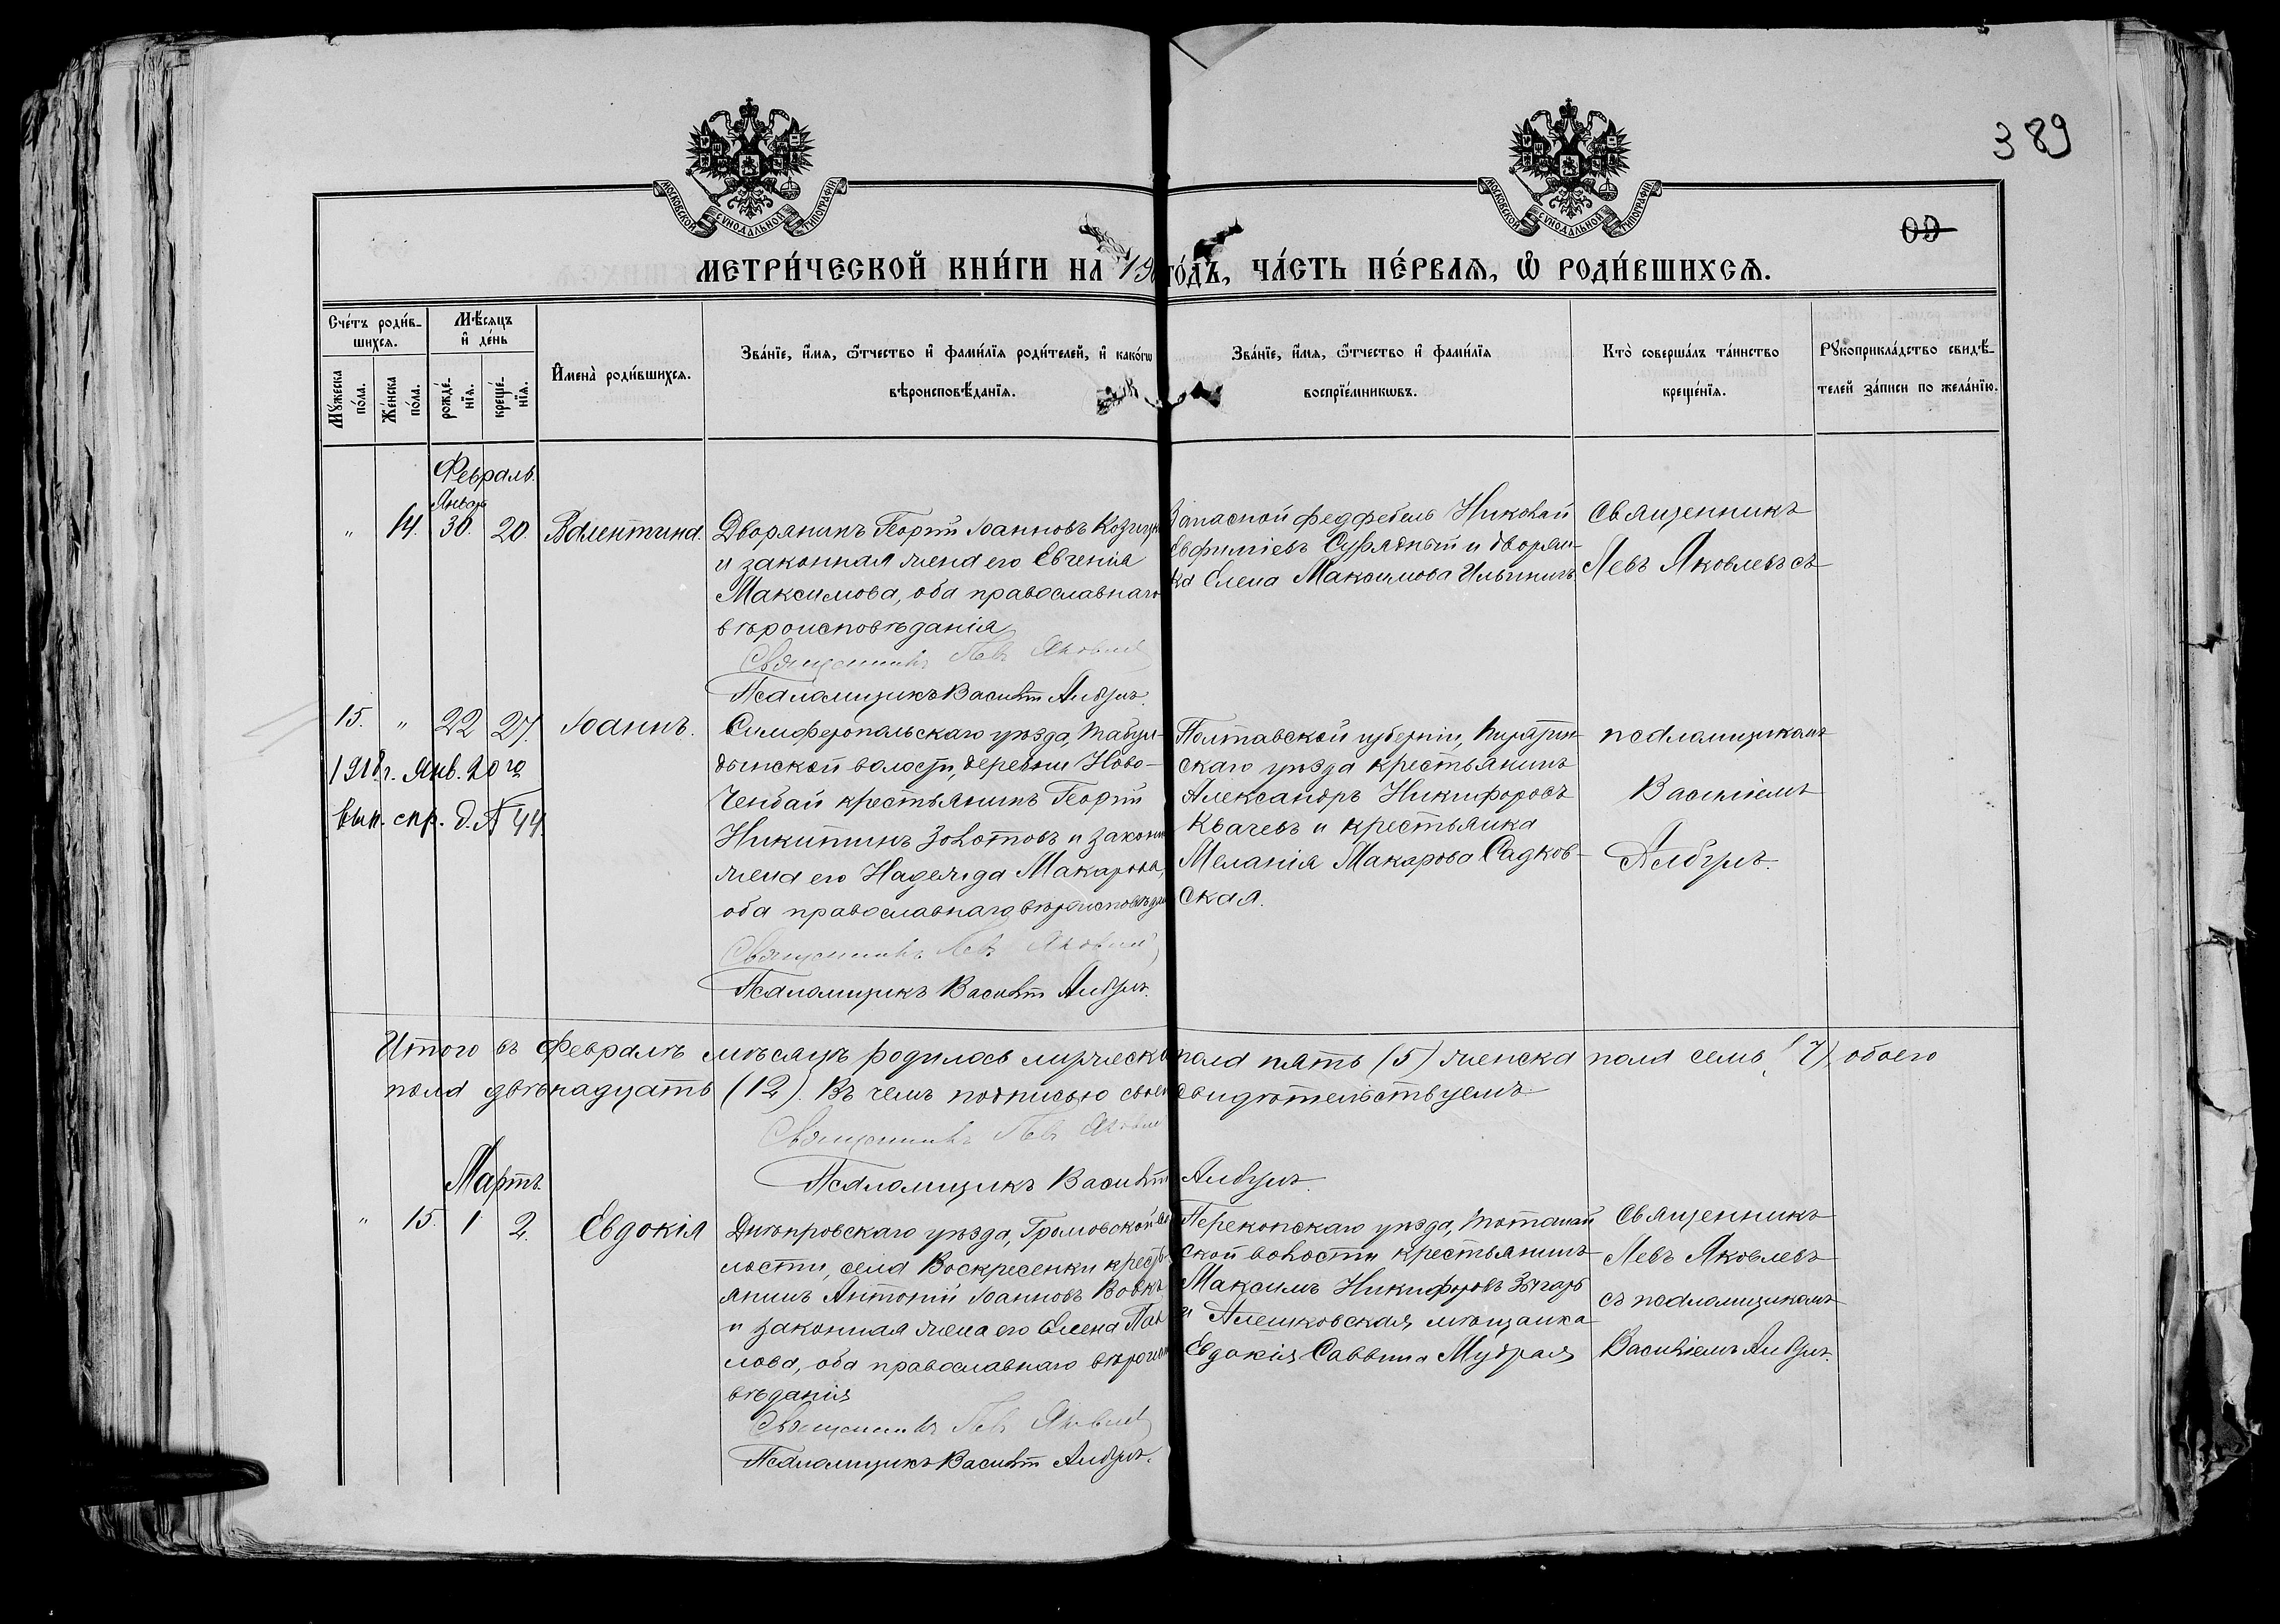 389
МОСКОВСКОЙ СѴНОДАЛЬНОЙ ТИПОГРАФІИ
МОСКОВСКОЙ СѴНОДАЛЬНОЙ ТИПОГРАФІИ
МЕТРИ́ЧЕСКОЙ КНИ́ГИ НА 19 ГО́ДЪ, ЧА́СТЬ ПЕ́РВАЯ, Ѡ҆ РОДИ́ВШИХСЯ.
Сче́тъ роди́в-
шихся.
Мѣ́сяцъ
и҆ де́нь
Мꙋ́жеска
по́ла.
Же́нска
по́ла.
рожде́-
нїя.
креще́-
нїя.
И҆мена̀ роди́вшихся.
Зва́нїе, и҆́мя, ѻ҆́тчество и҆ фами́лїя роди́телей, и҆ како́гѡ
вѣроисповѣ́данїя.
Зва́нїе, и҆́мя, ѻ҆́тчество и҆ фами́лїя
воспрїе́мникѡвъ.
Кто̀ соверша́лъ та́инство
креще́нїя.
Рꙋкоприкла́дство свидѣ́-
телей за́писи по жела́нїю.
Февраль.
Январь
" 14. 30. 20. Валентина.
Дворянинъ Георгій Іоанновъ
и законная жена его Евгенія
Максимова, оба православнаго
вѣроисповѣданія
Священникъ Левъ Яковлевъ
Псаломщикъ Василій Албулъ.
Запасной федфебель Николай
Евфиміевъ и дворян-
ка Елена Максимова
Священникъ
Левъ Яковлевъ съ
15. " 22 27. Іоаннъ.
1918 г. Янв. 20 го
вып. спр. д. № 44
Симферопольскаго уѣзда, Табул-
динской волости, деревни Ново-
Ченбай крестьянинъ Георгій
Никитинъ Золотовъ и законн
жена его Надежда Макарова,
оба православнаго вѣроисповѣдан
Священникъ Левъ Яковлевъ
Псаломщикъ Василій Албулъ.
Полтавской губерніи, Пирятин-
скаго уѣзда крестьянинъ
Александръ Никифоровъ
Квачевъ и крестьянка
Меланія Макарова Садков-
ская.
псаломщикомъ
Василіемъ
Албулъ.
Итого въ Февралѣ мѣсяцѣ родилось мужеска пола пять (5) женска пола семь (7), обоего
пола двѣнадцать (12). Въ чемъ подписью своею свидѣтельствуемъ.
Священникъ Левъ Яковлевъ
Псаломщикъ Василій Албулъ.
Мартъ.
" 15. 1 2. Евдокія
Днѣпровскаго уѣзда, Громовской во
лости, села Воскресенки кресть-
янинъ Антоній Іоанновъ Вовкъ
и законная жена его Елена Пав
лова, оба православнаго вѣроиспо
вѣданія
Священникъ Левъ Яковлевъ
Псаломщикъ Василій Албулъ.
Перекопскаго уѣзда, Тотанай
ской волости крестьянинъ
Максимъ Никифоровъ
и Алешковская мѣщанка
Евдокія Саввина Мудрая
Священникъ
Левъ Яковлевъ
съ псаломщикомъ
Василіемъ Албулъ.